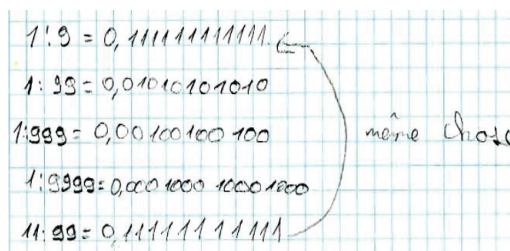 1:9 = 0,111111111111
1:99 = 0,01010101010
1:999 = 0,00100100100 même chose
1:9999 = 0,000100010001000
11:99 = 0,11111111111